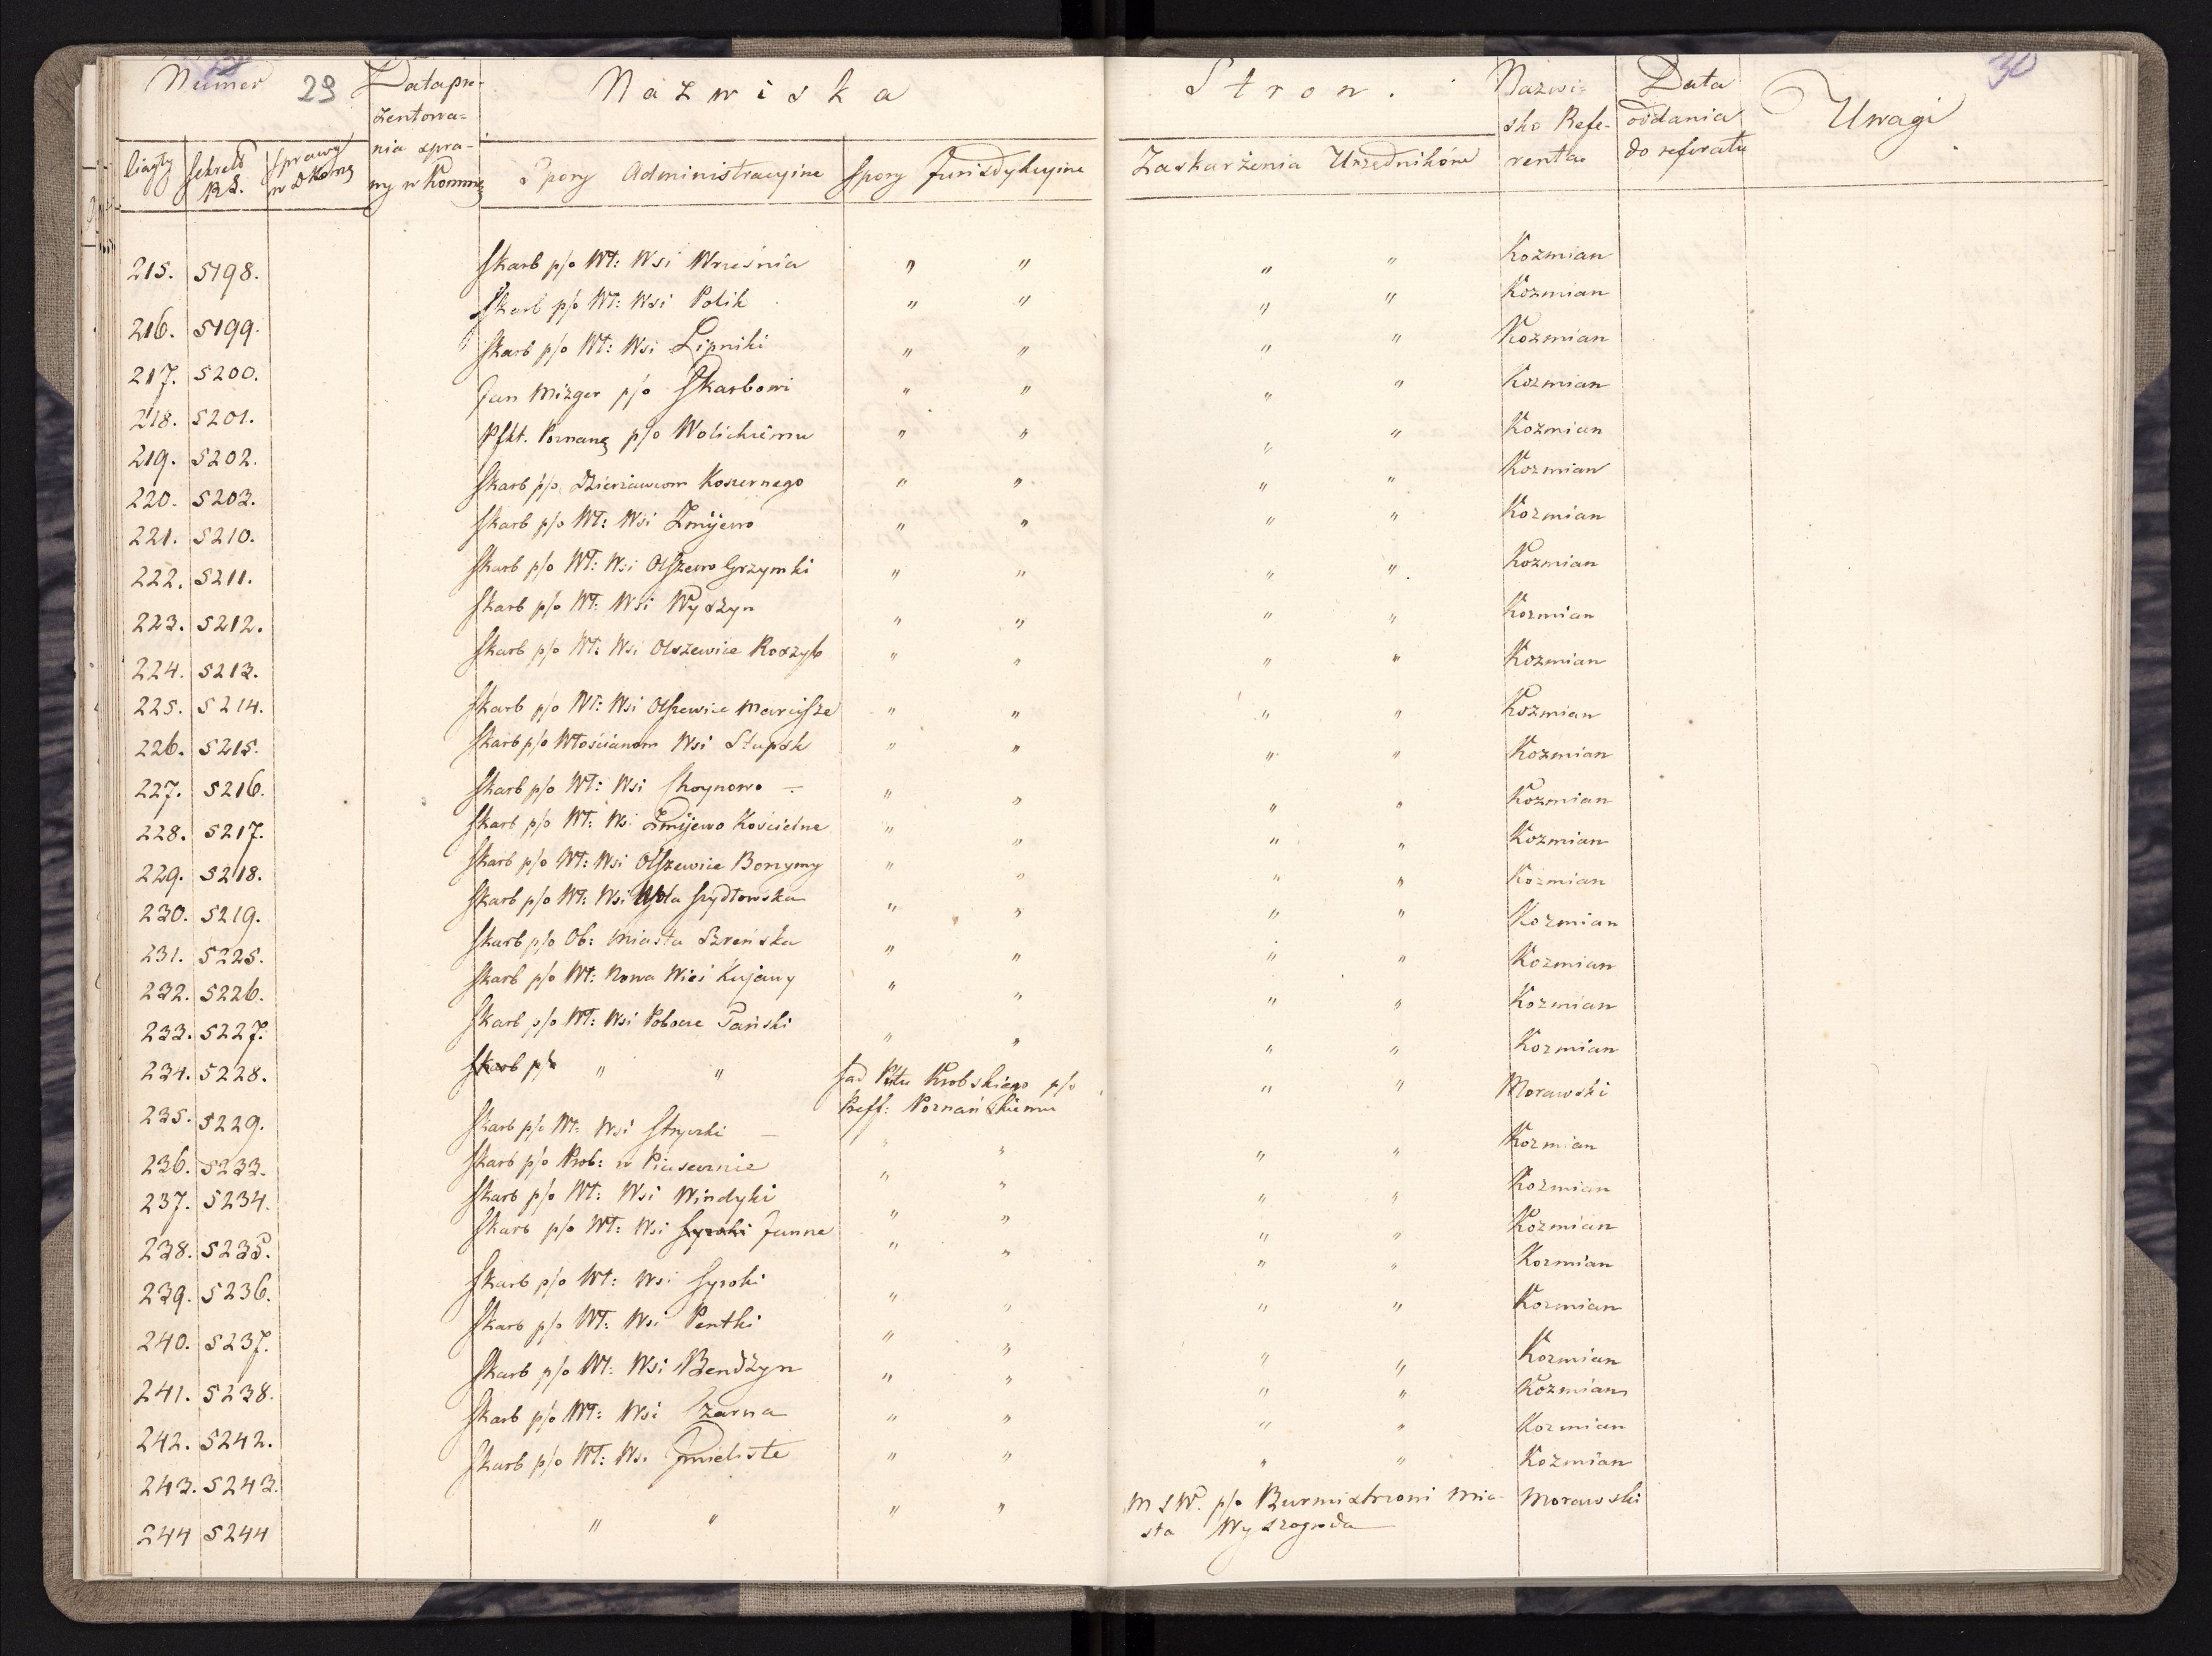 Numer 29 Data pre- Nazwiska Stron. Nazwi- Data Uwagi 30
zentowa- sko Refe- oddania
nia spra- renta do referatu
wy w Kommę
Ciągły Sekret. Sprawy Spory Administracyine Spory Jurisdykcyine Zaskarżenia Urzędników
R S. w D Komę
215. 5198. Skarb p/o Wł: Wsi Września " " " " Kozmian
216. 5199. Skarb p/o Wł: Wsi Polik " " " " Kozmian
217. 5200. Skarb p/o Wł: Wsi Lipniki " " " " Kozmian
218. 5201. Jan Mizger p/o Skarbowi " " " " Kozmian
219. 5202. Pfkt. Poznanę p/o Wolickiemu " " " " Kozmian
220. 5203. Skarb p/o Dzierzawcom Koszernego " " " " Kozmian
221. 5210. Skarb p/o Wł: Wsi Zmijewo " " " " Kozmian
222. 5211. Skarb p/o Wł: Wsi Olszewo Grzymki " " " " Kozmian
223. 5212. Skarb p/o Wł: Wsi Wyszyn " " " " Kozmian
224. 5213. Skarb p/o Wł: Wsi Olszewice Roszyb " " " " Kozmian
225. 5214. Skarb p/o Wł: Wsi Olszewice Marcisze " " " " Kozmian
226. 5215. Skarb p/o Włościanom Wsi Stupsk " " " " Kozmian
227. 5216. Skarb p/o Wł: Wsi Choynowo – " " " " Kozmian
228. 5217. Skarb p/o Wł: Wsi Zmijewo Kościelne " " " " Kozmian
229. 5218. Skarb p/o Wł: Wsi Olszewice Bonymy " " " " Kozmian
230. 5219. Skarb p/o Wł: Wsi Wola Szydłowska " " " " Kozmian
231. 5225. Skarb p/o Ob: Miasta Szreńska " " " " Kozmian
232. 5226. Skarb p/o Wł: Nowa Wieś Kujawy " " " " Kozmian
233. 5227. Skarb p/o Wł: Wsi Poborze Pański " " " " Kozmian
234. 5228. Skarb p/o " " Sąd Pttu Krobskiego p/o " " Morawski
Preff: Poznańskiemu
235. 5229. Skarb p/o Wł: Wsi Stryczki – " " " " Kozmian
236. 5233. Skarb p/o Prob: w " " " " Kozmian
237. 5234. Skarb p/o Wł: Wsi Windyki " " " " Kozmian
238. 5235. Skarb p/o Wł: Wsi Syroki Junne " " " " Kozmian
239. 5236. Skarb p/o Wł: Wsi Syroki " " " " Kozmian
240. 5237. Skarb p/o Wł: Wsi Pentki " " " " Kozmian
241. 5238. Skarb p/o Wł: Wsi Bendzyn " " " " Kozmian
242. 5242. Skarb p/o Wł: Wsi Czarna " " " " Kozmian
243. 5243. Skarb p/o Wł: Wsi " " " " Kozmian
244 5244 " " " " M S W. p/o Burmistrzowi Mia- Morawski
sta Wyszogroda